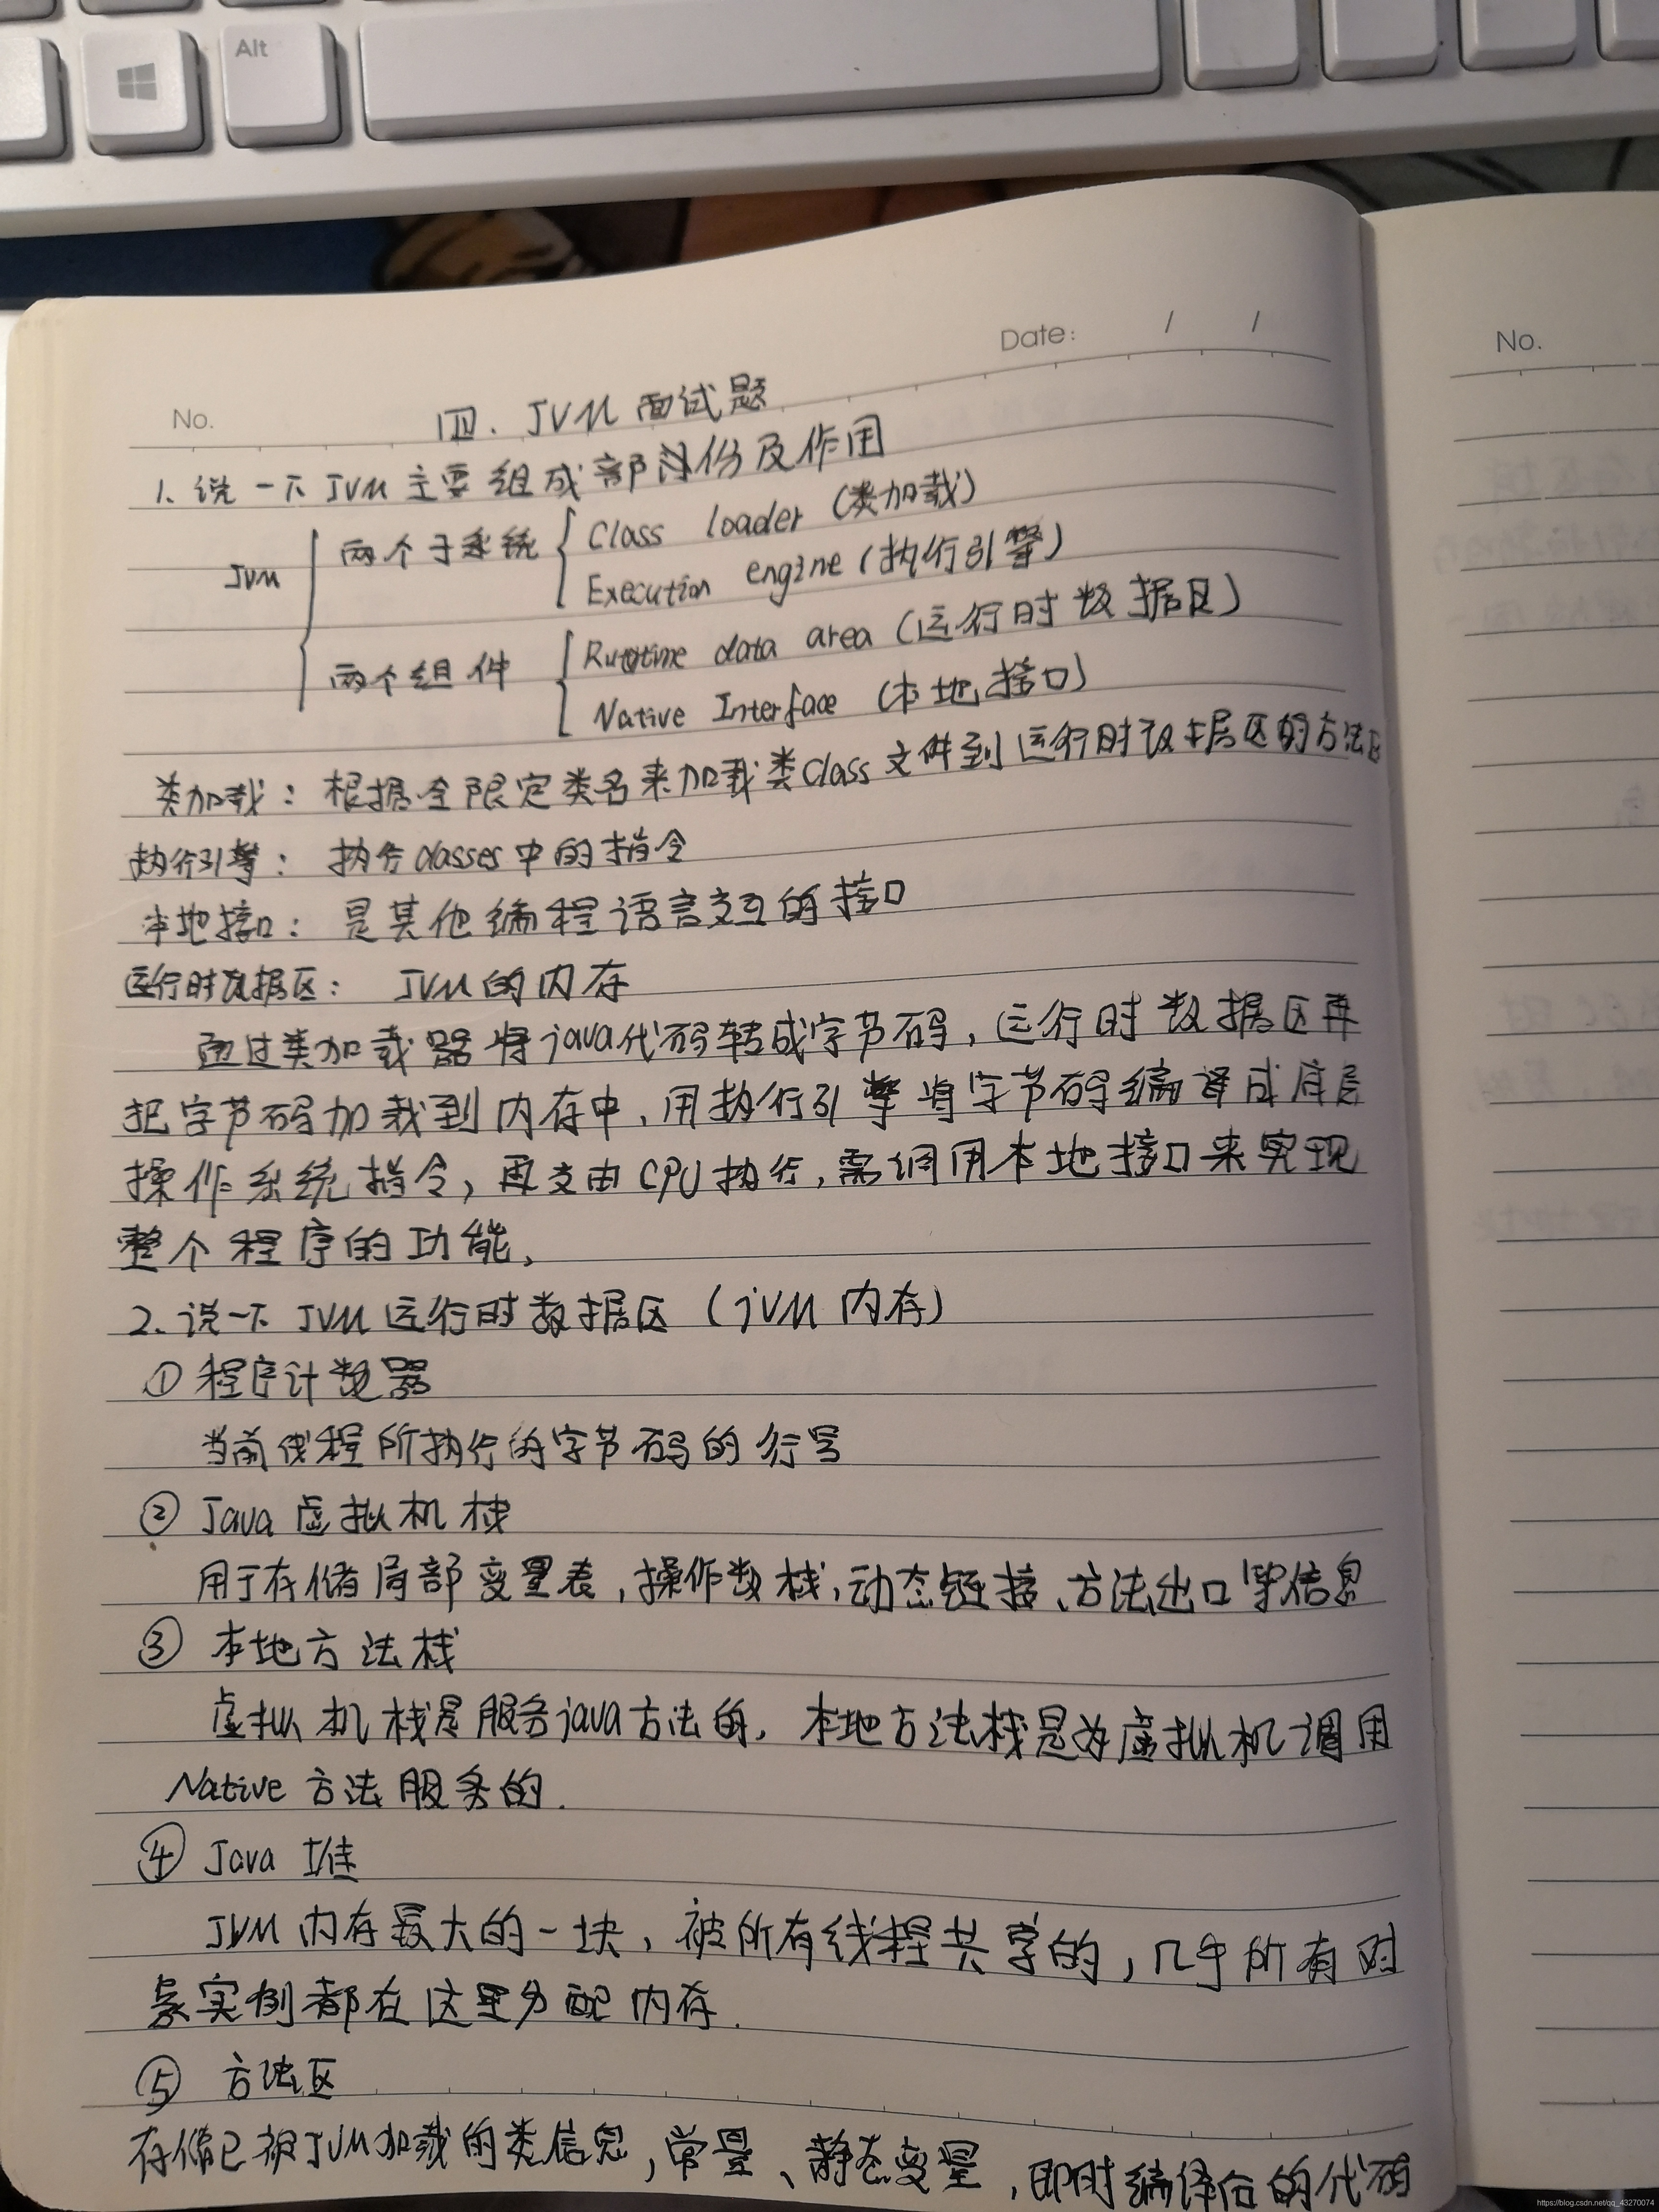 Alt
Date: / /
No.
No.
四. JVM 面试题
1. 说一下 JVM 主要组成部份及作用
JVM
两个子系统
Class loader (类加载)
Execution engine (执行引擎)
两个组件
Runtime data area (运行时数据区)
Native Interface (本地接口)
类加载: 根据全限定类名来加载类class文件到运行时数据区的方法区
执行引擎: 执行classes中的指令
本地接口: 是其他编程语言交互的接口
运行时数据区: JVM的内存
通过类加载器将java代码转成字节码, 运行时数据区再
把字节码加载到内存中, 用执行引擎将字节码编译成底层
操作系统指令, 再交由CPU执行, 需调用本地接口来实现
整个程序的功能,
2. 说一下 JVM 运行时数据区 (jVM 内存)
① 程序计数器
当前线程所执行的字节码的行号
② Java 虚拟机栈
用于存储局部变量表, 操作数栈, 动态链接、方法出口等信息
③ 本地方法栈
虚拟机栈是服务java方法的, 本地方法栈是为虚拟机调用
Native 方法服务的.
④ Java 堆
JVM 内存最大的一块, 被所有线程共享的, 几乎所有对
象实例都在这里分配内存.
⑤ 方法区
存储已被JVM加载的类信息, 常量、静态变量, 即时编译后的代码
https://blog.csdn.net/qq_43270074